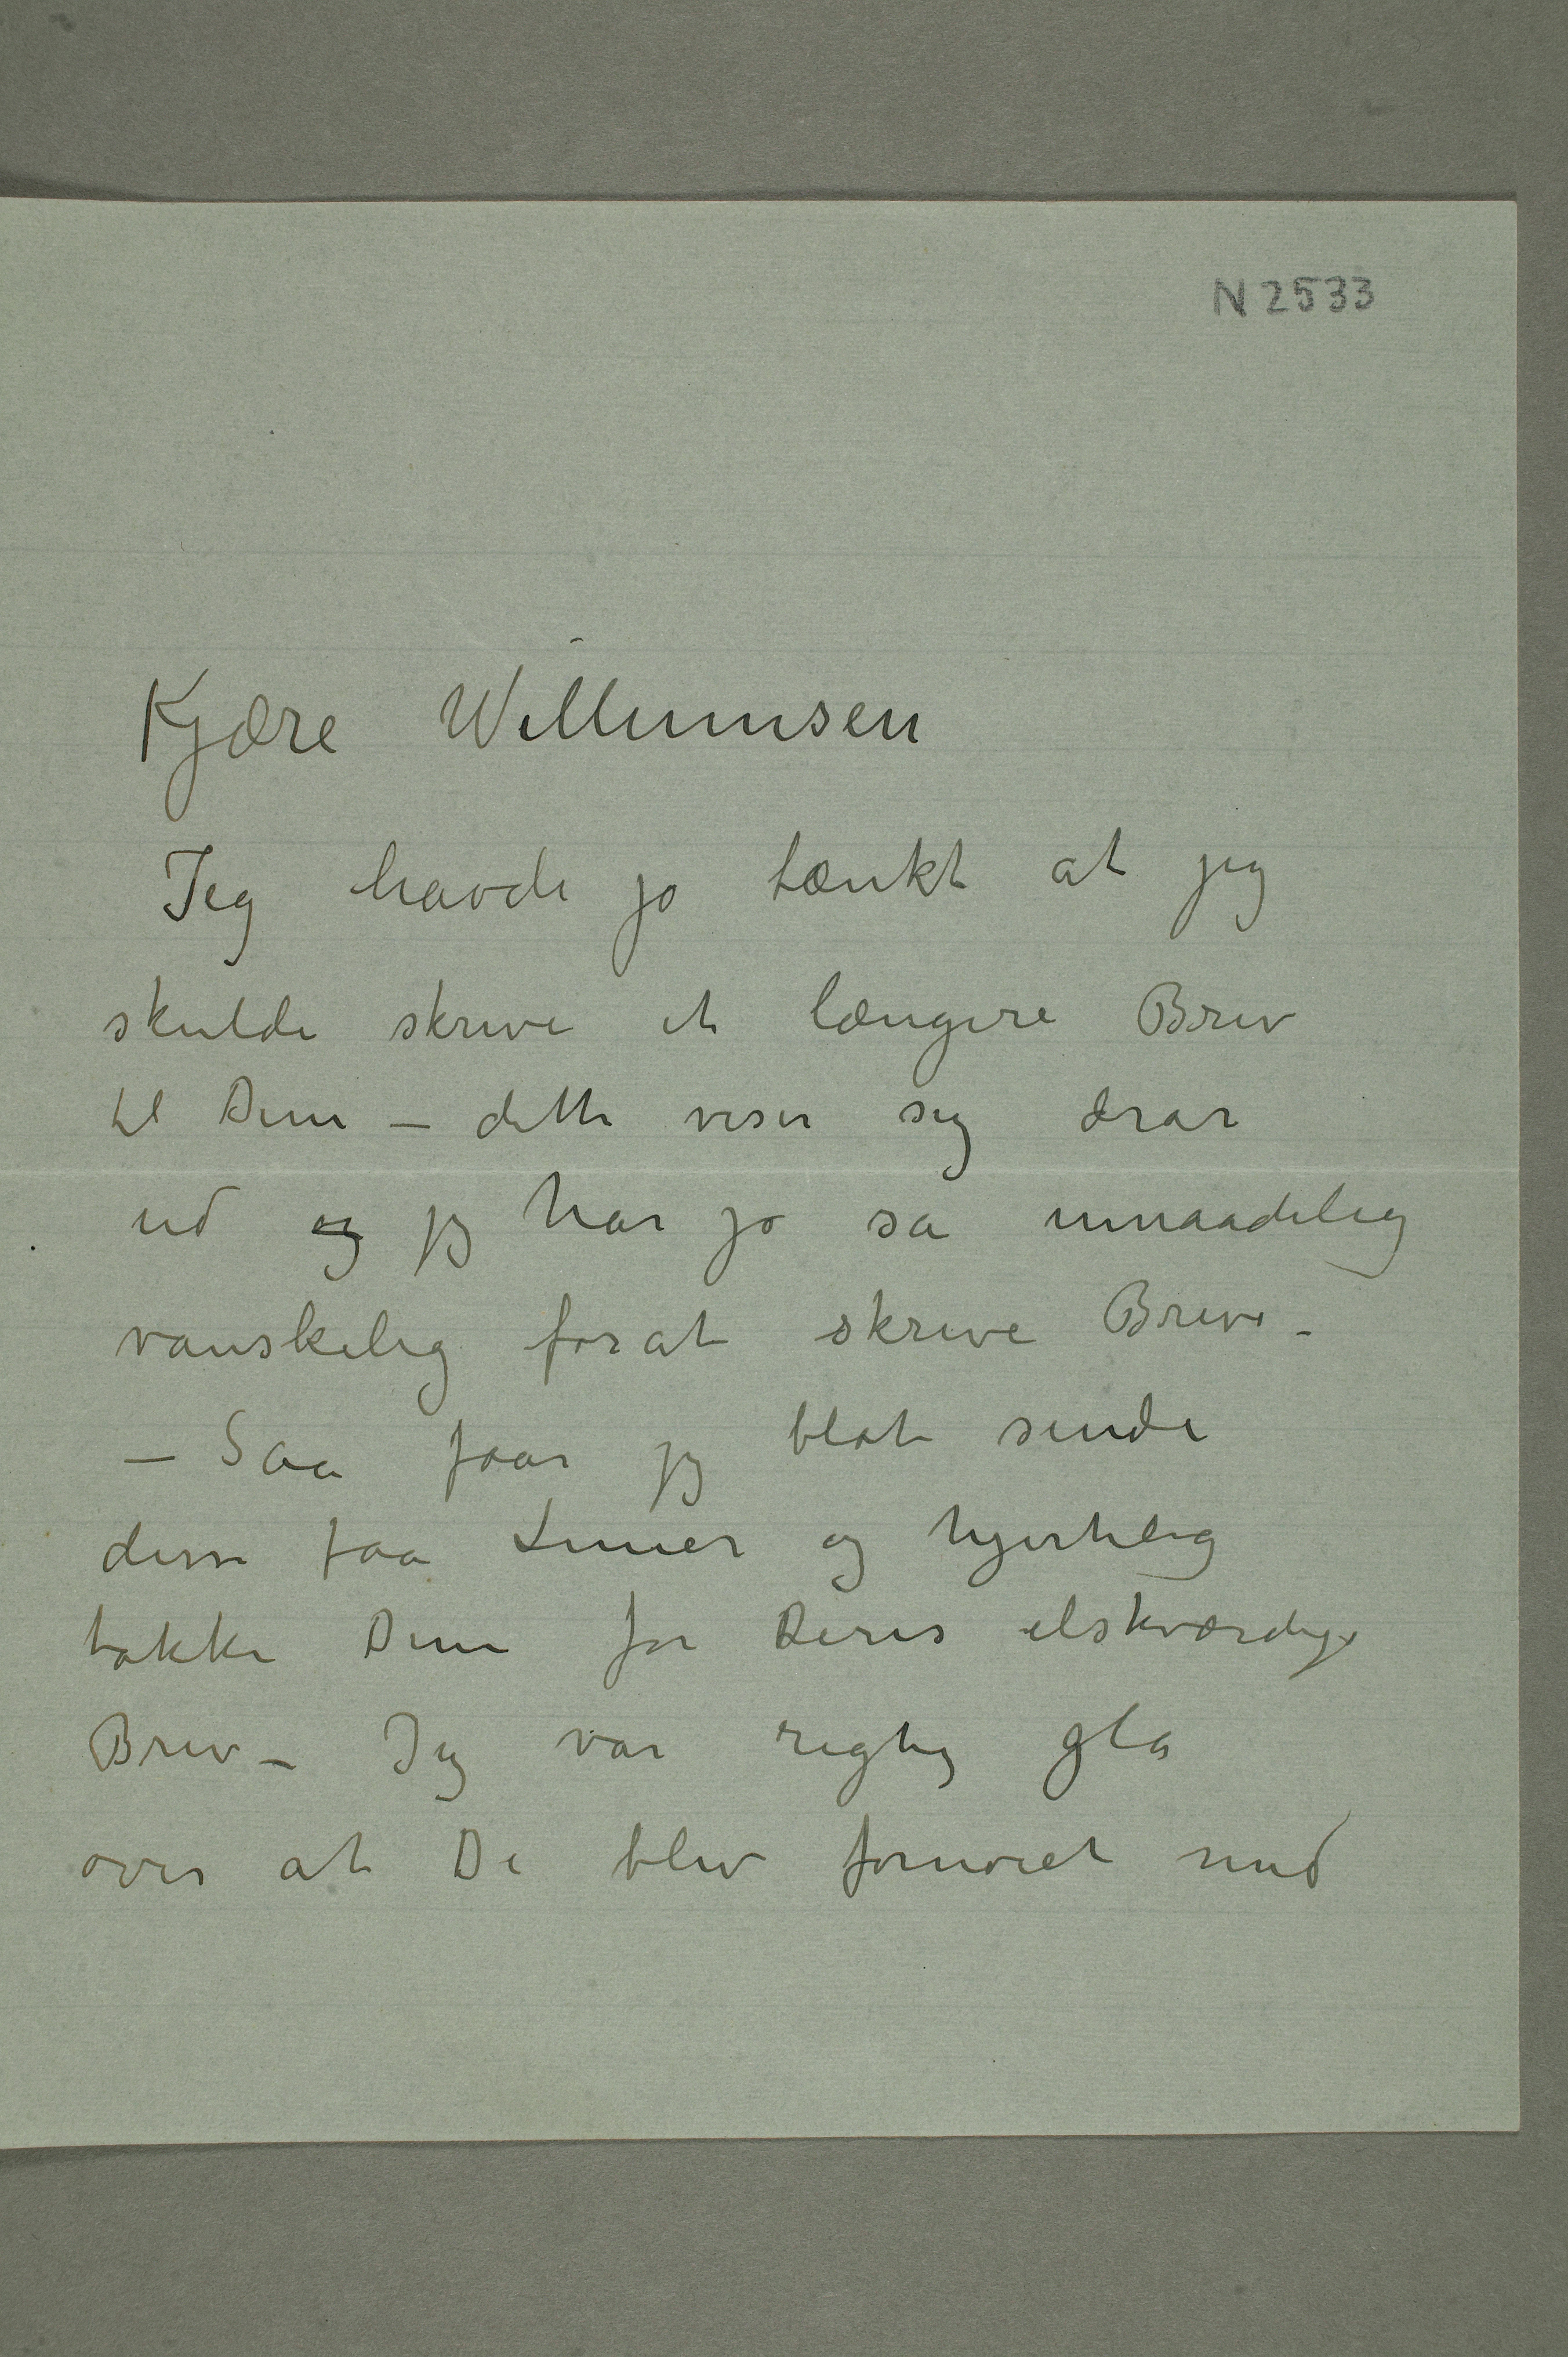 N 2533
Kjære Willumsen
Jeg havde jo tænkt at jeg
skulde skrive et længere Brev
til Dem – dette viser sig drar
ud og jeg har jo sa umaadelig
vanskelig for at skrive Breve –
– Saa faar jeg blot sende
disse faa Linier og hjertelig
takke Dem for Deres elskværdige
Brev – Jeg var rigtig gla
over at De blev fornøiet med